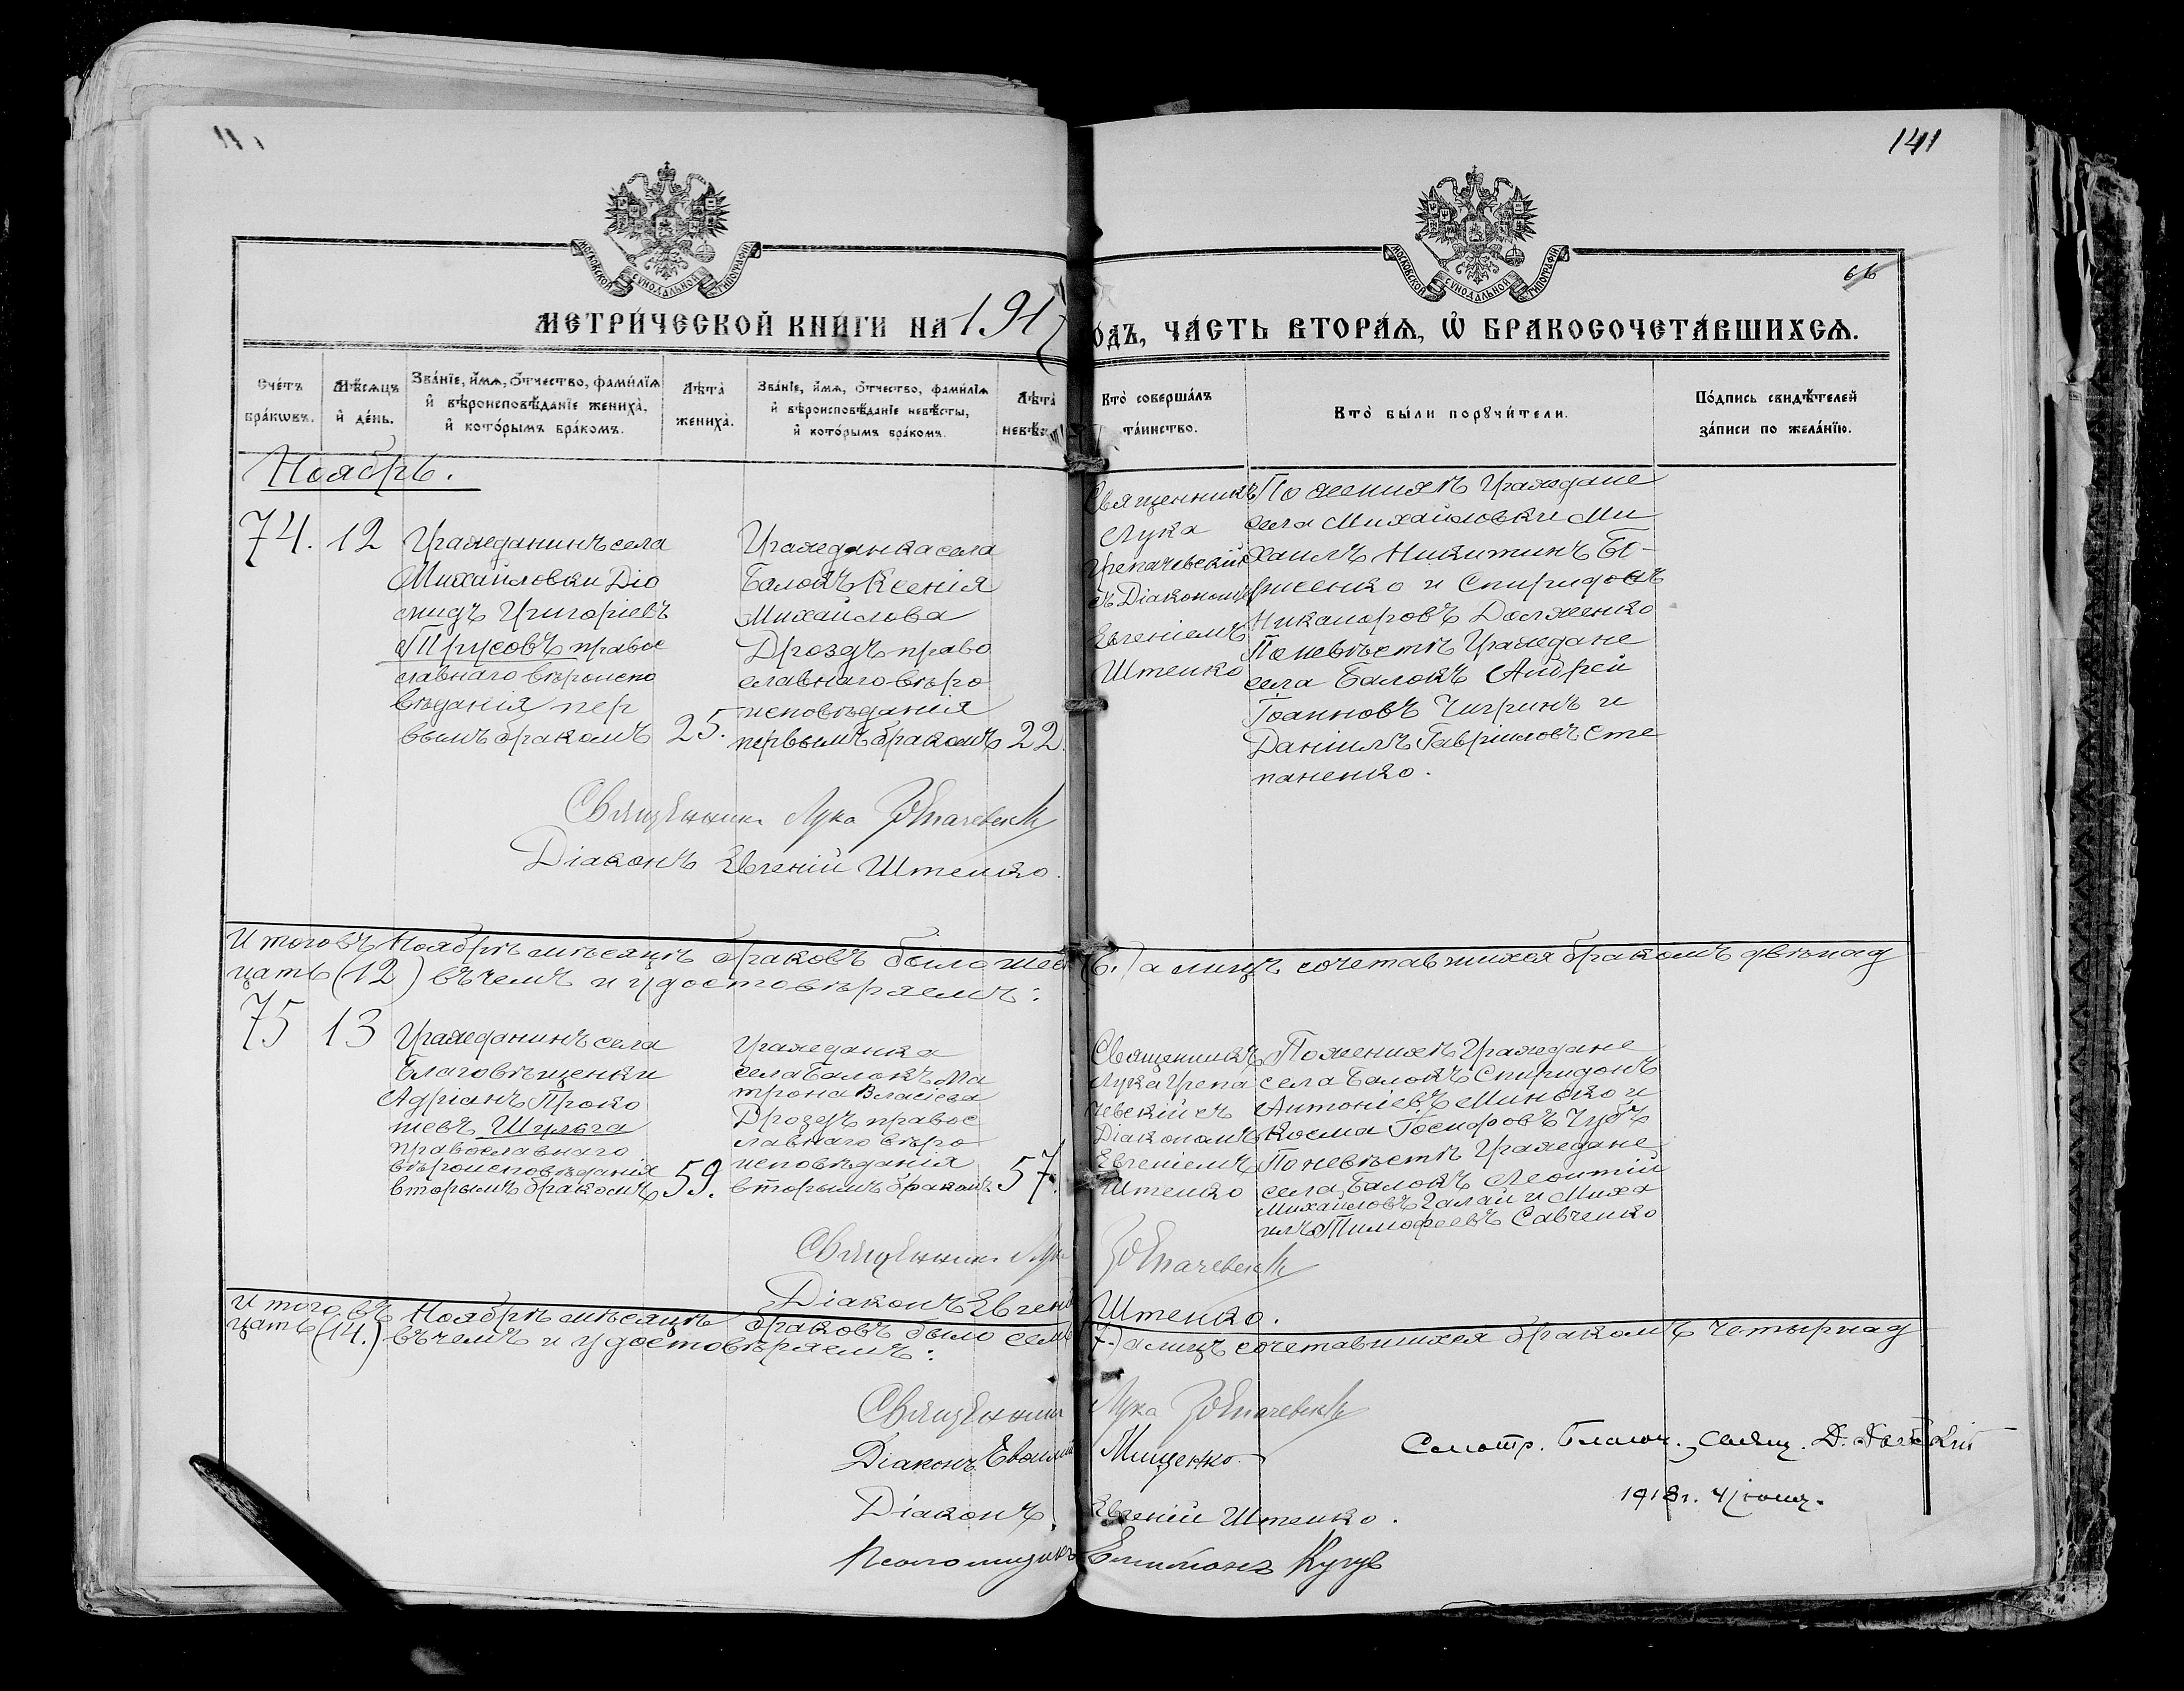 141
66
МОСКОВСКОЙ СѴНОДАЛЬНОЙ ТИПОГРАФІИ
МОСКОВСКОЙ СѴНОДАЛЬНОЙ ТИПОГРАФІИ
МЕТРИ́ЧЕСКОЙ КНИ́ГИ НА 1917
ОДЪ, ЧА́СТЬ ВТОРА́Ѧ, Ѽ БРАКОСОЧЕТА́ВШИХСѦ.
Сче́тъ бра́кѡвъ.
Мѣ́сѧцъ и҆ де́нь.
Зва́нїе, и҆́мѧ, ѻ҆́тчество, фами́лїѧ и҆ вѣроисповѣ́данїе жениха̀, и҆ кото́рымъ бра́комъ.
Лѣ́та̀ жениха̀.
Зва́нїе, и҆́мѧ, ѻ҆́тчество, фами́лїѧ и҆ вѣроисповѣ́данїе невѣ́сты, и҆ кото́рымъ бра́комъ.
Лѣ́та̀ невѣ́
Кто̀ соверша́лъ та́инство.
Кто̀ бы́ли порꙋчи́тели.
По́дпись свидѣ́телей за́писи по жела́нїю.
Ноябрь.
74. 12
Гражданинъ села
Михайловки Діо
мидъ Григоріевъ
Прусовъ правос
лавнаго вѣроиспо
вѣданія пер
вымъ бракомъ 25.
Гражданка села
Балокъ Ксенія
Михайлова
Дроздъ право
славнаго вѣро
исповѣданія
первымъ бракомъ 22.
Священникъ
Лука
Грепачевскій
съ Діакономъ
Евгеніемъ
Штепко
По женихѣ Граждане
села Михайловки Ми
хаилъ Никитинъ
и Спиридонъ
Никаноровъ Долженко
По невѣстѣ Граждане
села Балокъ Андрей
Іоанновъ Чигринъ и
Даніилъ Гавріиловъ Сте
паненко.
Священникъ Лука Грепачевскій
Діаконъ Евгеній Штепко.
Итого въ Ноябрѣ мѣсяцѣ браковъ было шес (6.) а лицъ сочетавшихся бракомъ двѣнад
цать (12) въ чемъ и удостовѣряемъ:
75 13
Гражданинъ села
Благовѣщенки
Адріанъ Проко
піевъ Шульга
православнаго
вѣроисповѣданія
вторымъ бракомъ 59.
Гражданка
села Балокъ Ма
трона Власіева
Дроздъ правос
лавнаго вѣро
исповѣданія
вторымъ бракомъ 57.
Священникъ
Лука Грепа
чевскій съ
Діакономъ
Евгеніемъ
Штепко
По женихѣ Граждане
села Балокъ Спиридонъ
Антоніевъ Минько и
Косма Іосифовъ Чубъ
По невѣстѣ Граждане
села Балокъ Леонтій
Михайловъ Галай и Миха
илъ Тимофеевъ Савченко
Священникъ Лука Грепачевскій
Діаконъ Евгеній Штепко.
Итого въ Ноябрѣ мѣсяцѣ браковъ было семь (7.) а лицъ сочетавшихся бракомъ четырнад
цать (14.) въ чемъ и удостовѣряемъ:
Священникъ Лука Грепачевскій
Діаконъ Мищенко.
Діаконъ Евгеній Штепко.
Псаломщикъ
Смотр. Благоч. Свящ. Д.
1918 г.